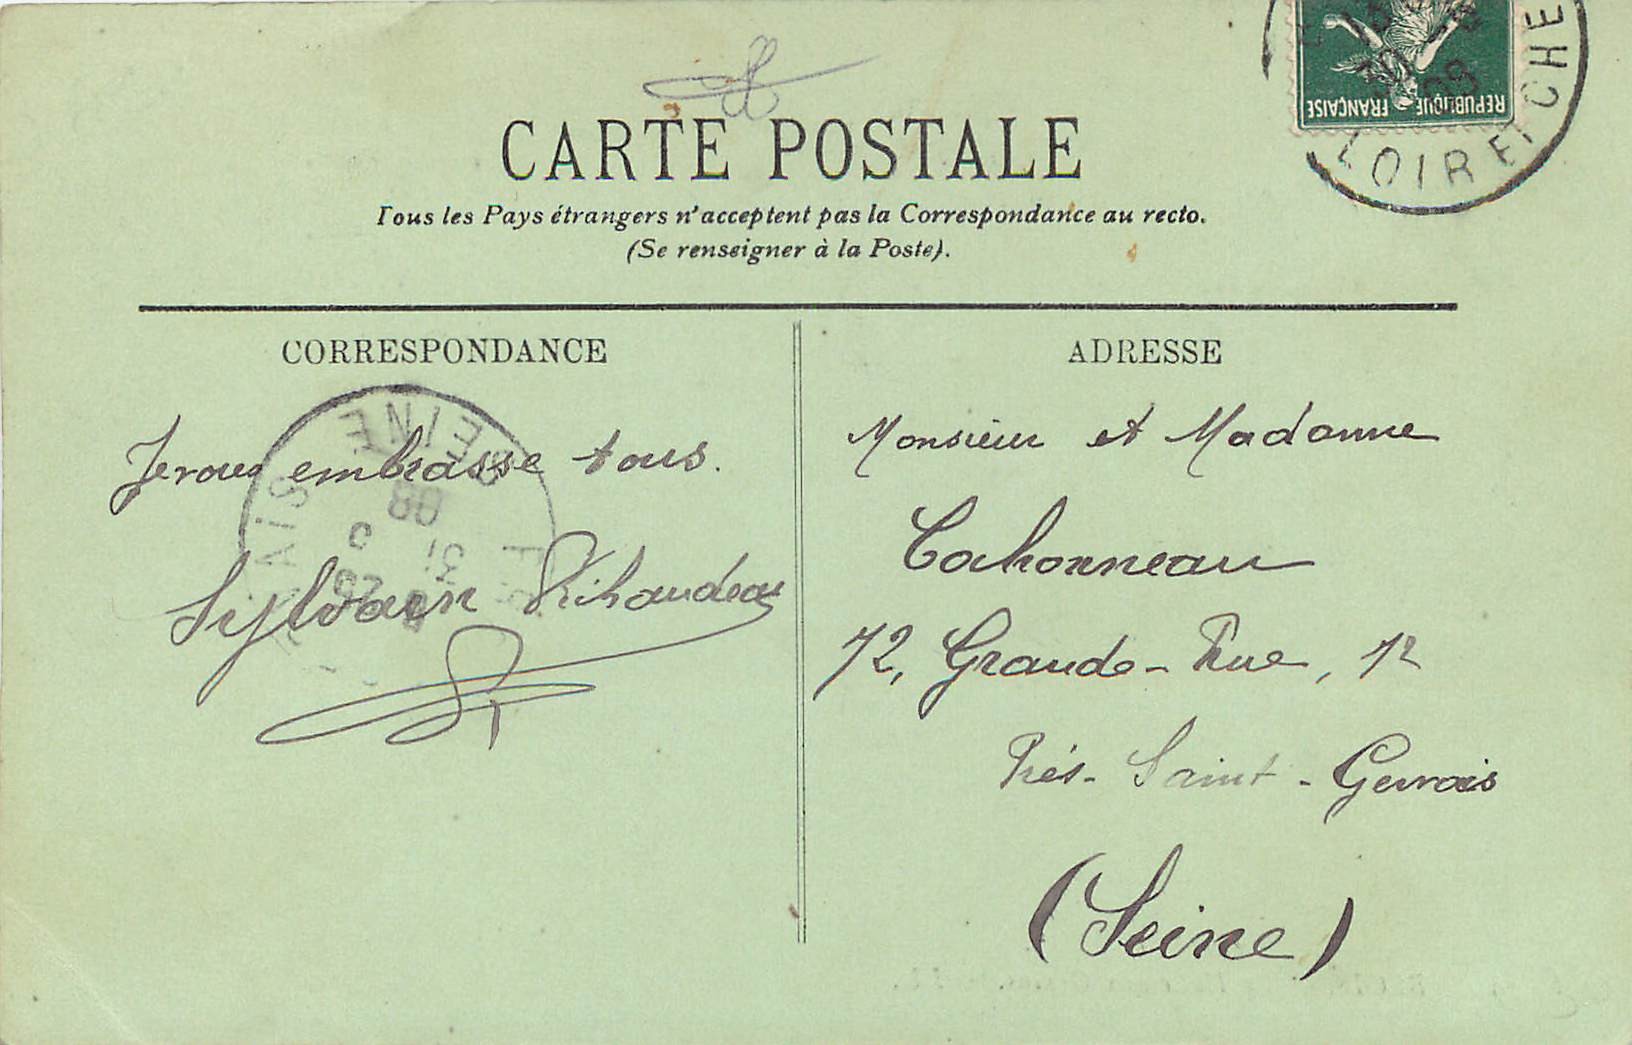 CARTE POSTALE
Tous les Pays étrangers n'acceptent pas la Correspondance au recto.
(Se renseigner à la Poste).
REPUBLIQUE FRANÇAISE
LOIR ET CHE
CORRESPONDANCE
Je vous embrasse tous.
Sylvain Rihaudeau
SEINE
ADRESSE
Monsieur et Madame
Cahonneau
12, Grande-Rue, 12
Prés-Saint-Gervais
(Seine)